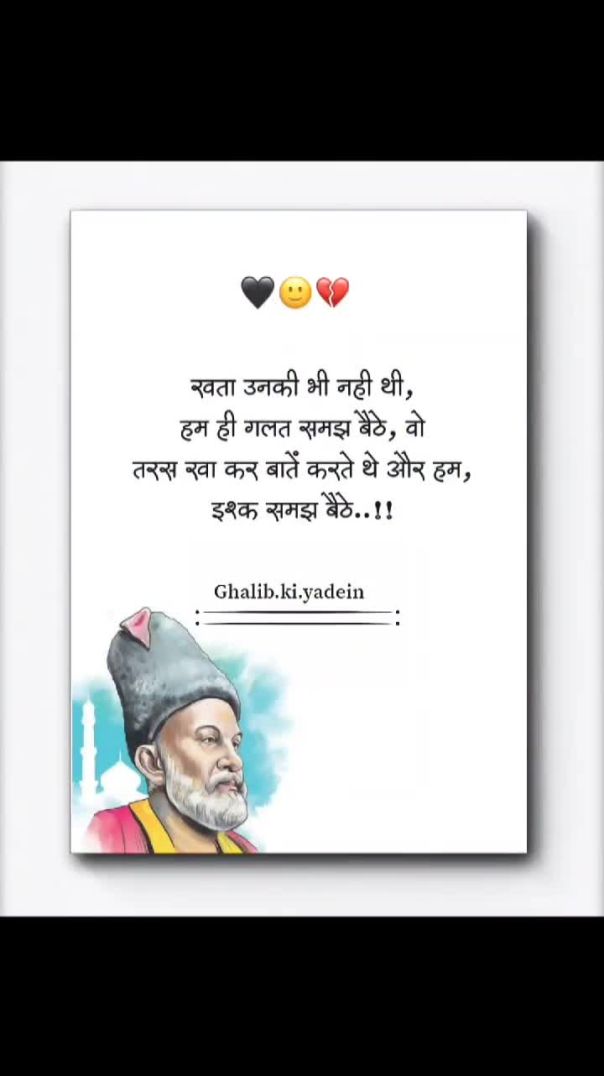 🖤🙂💔
खता उनकी भी नही थी,
हम ही गलत समझ बैठे, वो
तरस खा कर बातें करते थे और हम,
इश्क समझ बैठे..!!
Ghalib.ki.yadein